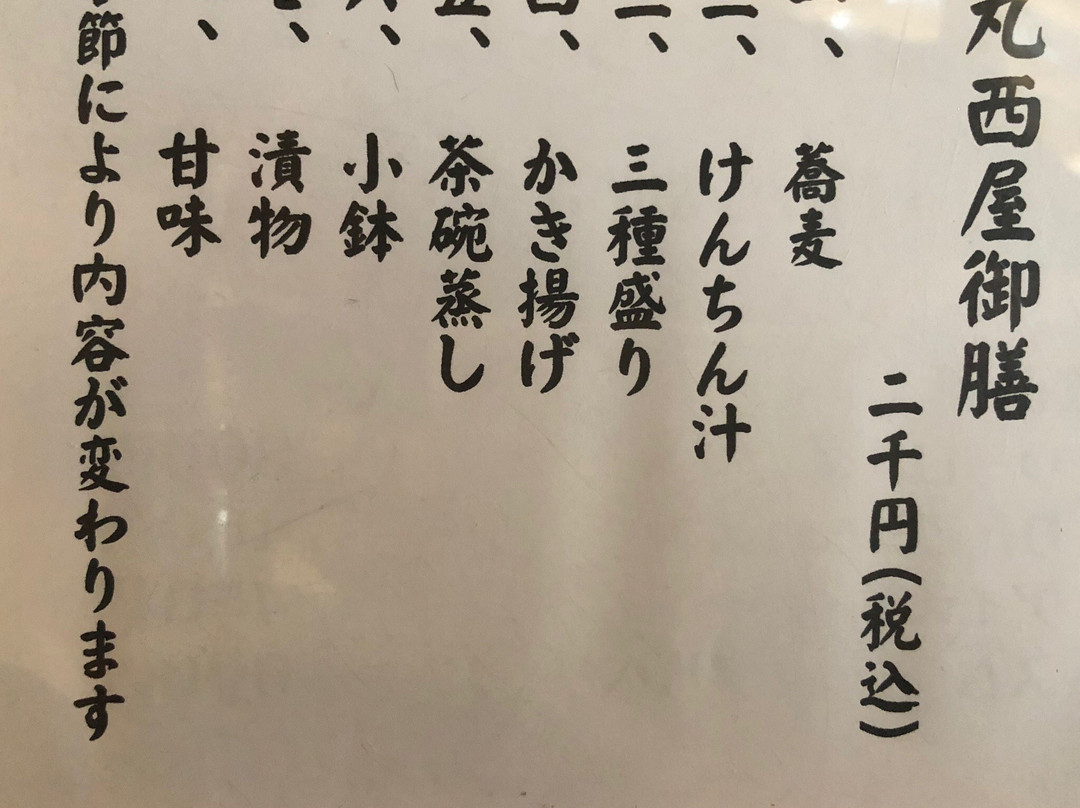 丸西屋御膳
二千円(税込)
、蕎麦
二、けんちん汁
三、三種盛り
四、かき揚げ
五、茶碗蒸し
六、小鉢
、漬物
、甘味
節により内容が変わります